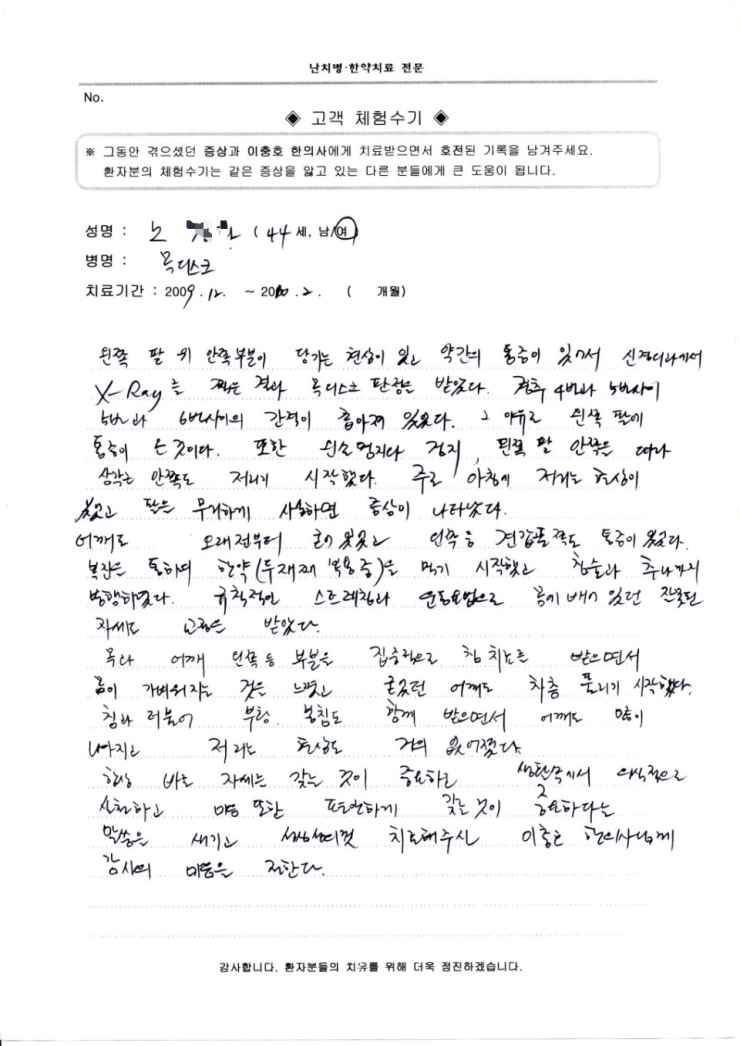 난치병·한약치료 전문
No.
◈ 고객 체험수기 ◈
※ 그동안 겪으셨던 증상과 이충호 한의사에게 치료받으면서 호전된 기록을 남겨주세요.
환자분의 체험수기는 같은 증상을 앓고 있는 다른 분들에게 큰 도움이 됩니다.
성명 : 노 (44세, 남/여)
병명 : 목디스크
치료기간 : 2009.12. ~ 2010.2. ( 개월)
왼쪽 팔 위 안쪽부분이 당기는 현상이 있고 약간의 통증이 있어서 신경외과에서
X-Ray를 찍은 결과 목디스크 판정을 받았다. 경추 4번과 5번사이
5번과 6번사이의 간격이 좁아져 있었다. 그 이유로 왼쪽 팔에
통증이 온 것이다. 또한 왼손 엄지와 검지, 왼쪽 팔 안쪽을 따라
삼각근 안쪽도 저리기 시작했다. 주로 아침에 저리는 현상이
있었고 팔을 무리하게 사용하면 증상이 나타났다.
어깨도 오래전부터 굳어 있었고 왼쪽 등 견갑골쪽도 통증이 있었다.
복진을 통하여 한약(두재째 복용중)을 먹기 시작했고 침술과 추나까지
병행하였다. 규칙적인 스트레칭과 운동요법으로 몸에 배어 있던 잘못된
자세도 교정을 받았다.
목과 어깨 왼쪽 등 부분을 집중적으로 침 치료를 받으면서
몸이 가벼워지는 것을 느꼈고 굳었던 어깨도 차츰 풀리기 시작했다.
침과 더불어 부항. 봉침도 함께 받으면서 어깨도 많이
나아지고 저리는 현상도 거의 없어졌다.
항상 바른 자세를 갖는 것이 중요하고 생활속에서 의식적으로
실천하고 마음 또한 편안하게 갖는 것이 중요하다는
말씀을 새기고 성심성의껏 치료해주신 이충호 한의사님께
감사의 마음을 전한다.
감사합니다. 환자분들의 치유를 위해 더욱 정진하겠습니다.